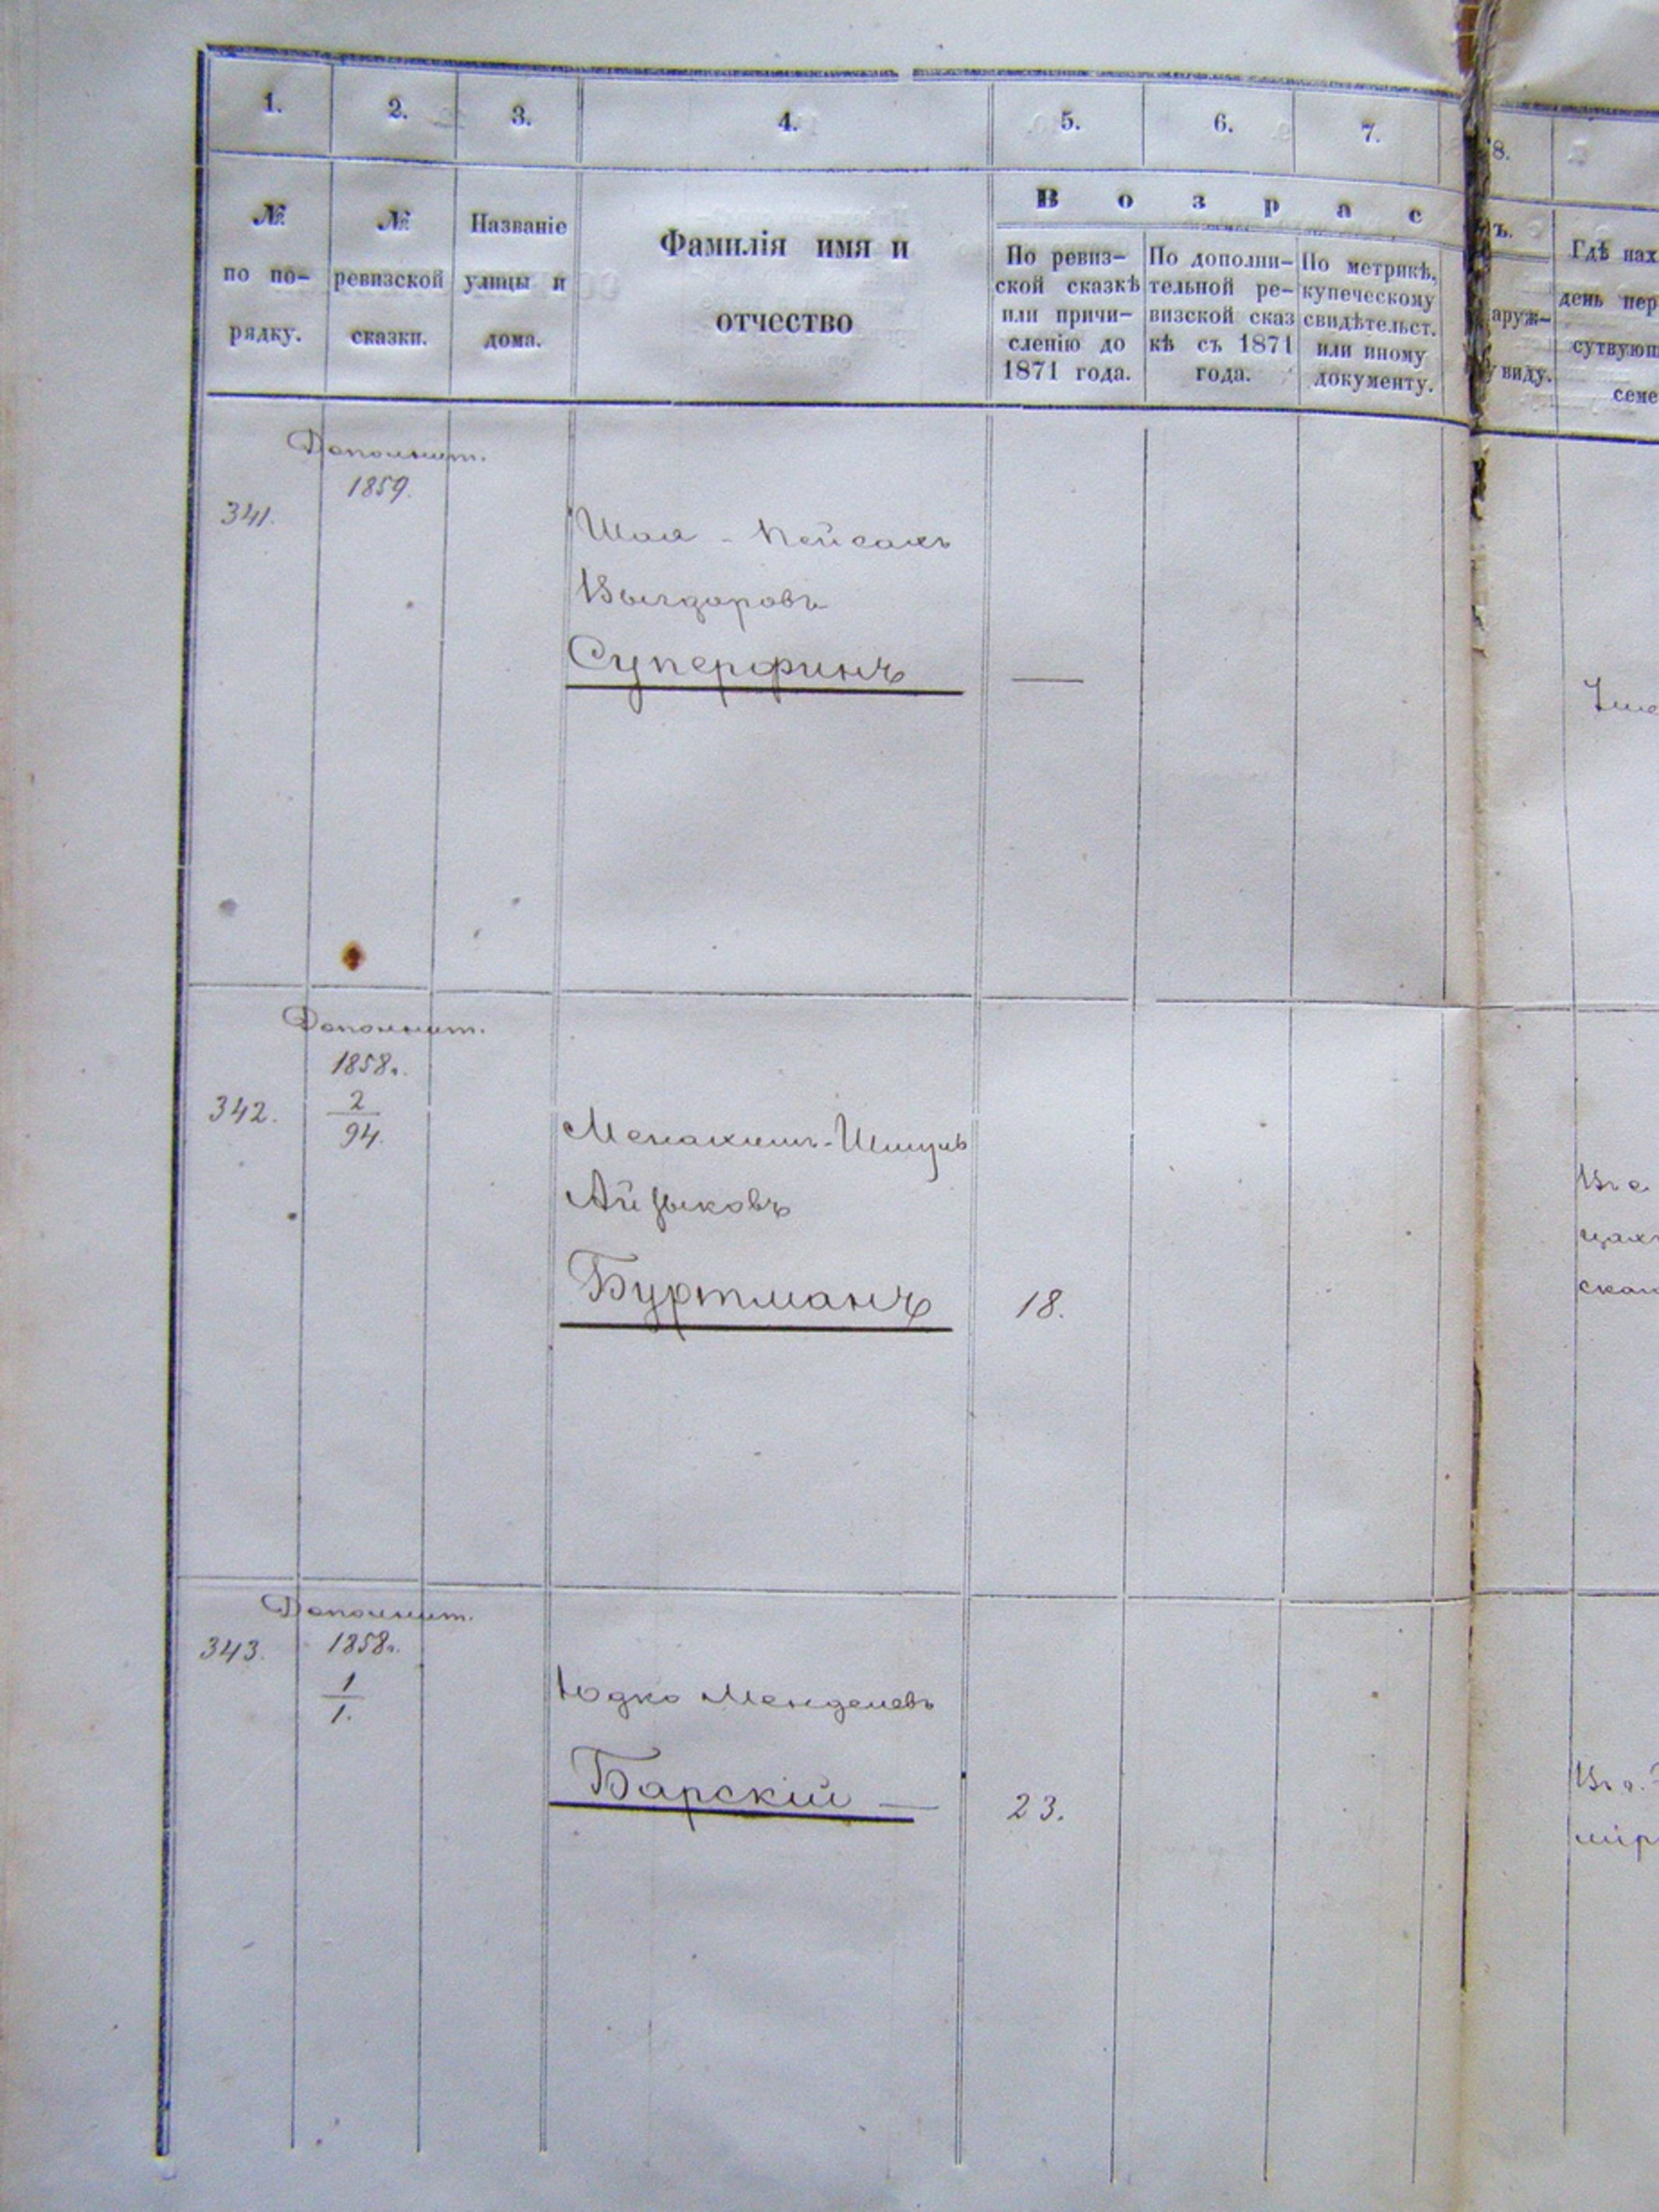 1. 2. 3. 4. 5. 6. 7. 8.
№ по по- рядку.
№ ревизской сказки.
Названіе улицы и дома.
Фамилія имя и
отчество
В о з р а с
По ревиз-
ской сказкѣ
или причи-
сленію до
1871 года.
По дополни-
тельной ре-
визской сказ
кѣ съ 1871
года.
По метрикѣ,
купеческому
свидѣтельст.
или иному
документу.
ъ.
аруж-
у виду.
Гдѣ нах
день пер
сутвующ
семе
Дополнит.
1859.
341.
Шая - Пейсахъ
Суперфинъ
—
Дополнит.
1858г.
342.
2
94.
Менахимъ-Шмуль
Айзыковъ
Буртманъ
18.
Дополнит.
343.
1858г.
1
1.
Юдко Менделевъ
Барскій —
23.